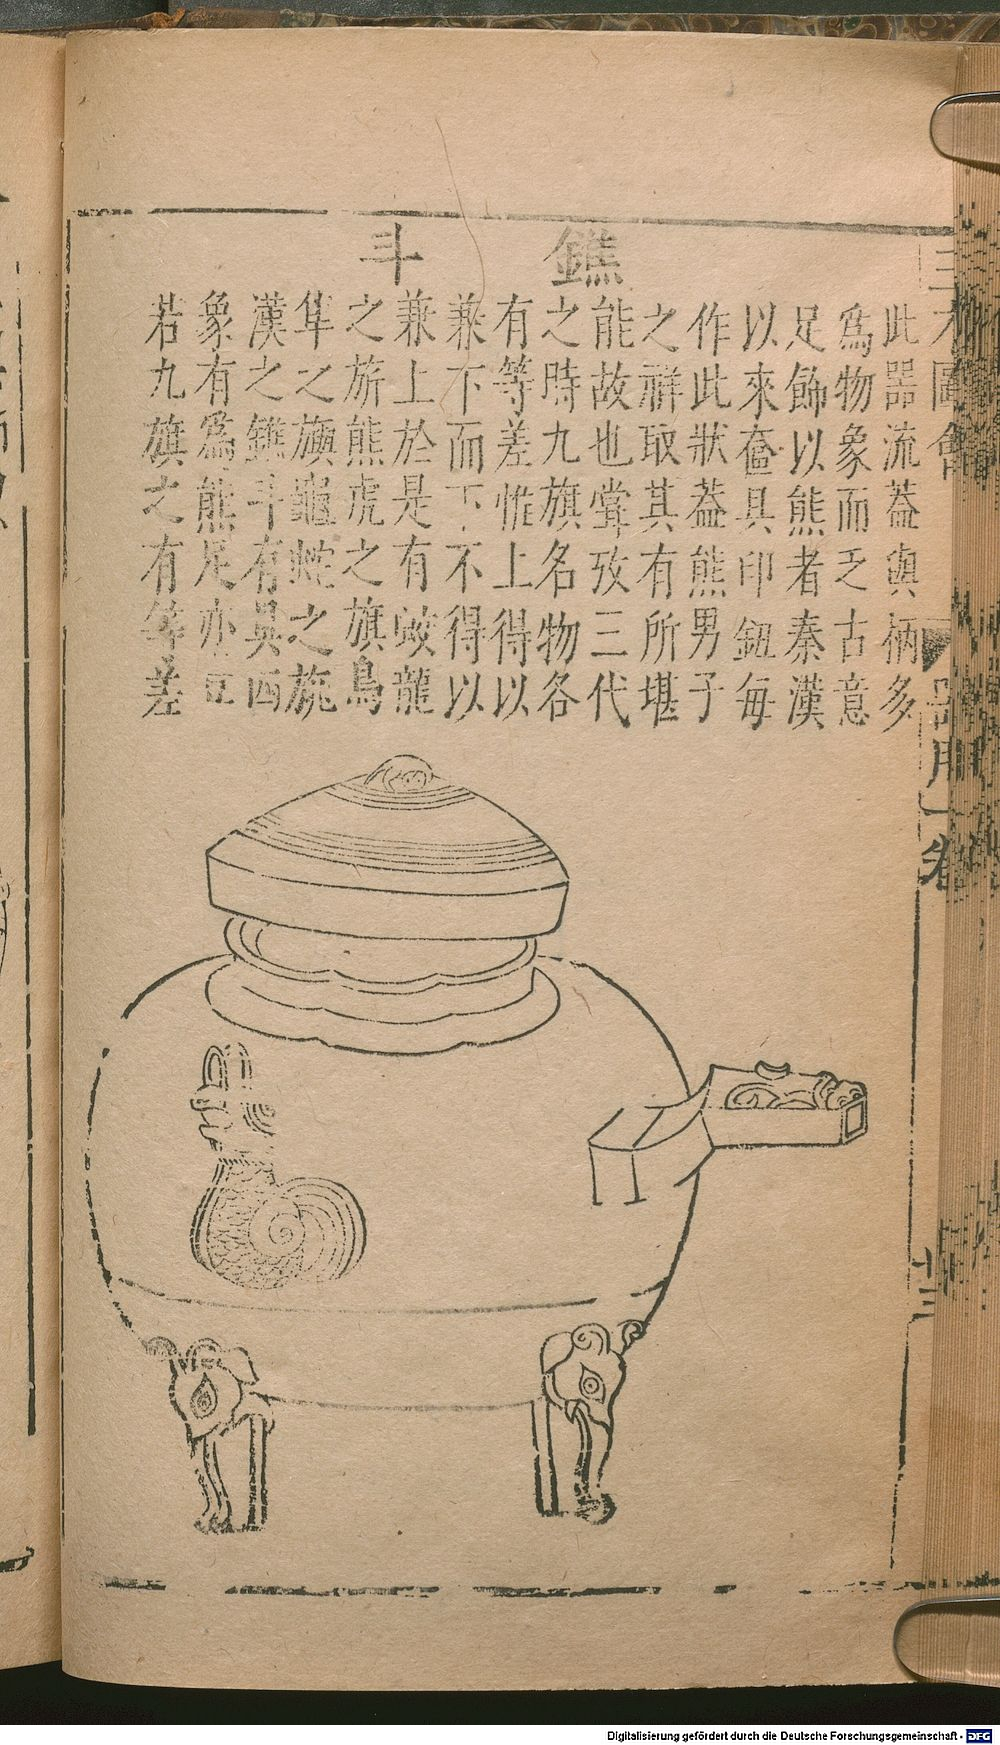 鐎斗
此器流葢與柄多
爲物象而乏古意
足飾以熊者秦漢
以來奩具印鈕每
作此狀葢熊男子
之祥取其有所堪
能故也嘗攷三代
之時九旗名物各
有等差惟上得以
兼下而下不得以
兼上於是有蛟龍
之旂熊虎之旗鳥
隼之旟龜蛇之旐
漢之鐎斗有具酉
象有爲熊足亦
若九旗之有等差
圖會
器用一卷
十三
Digitalisierung gefördert durch die Deutsche Forschungsgemeinschaft - DFG